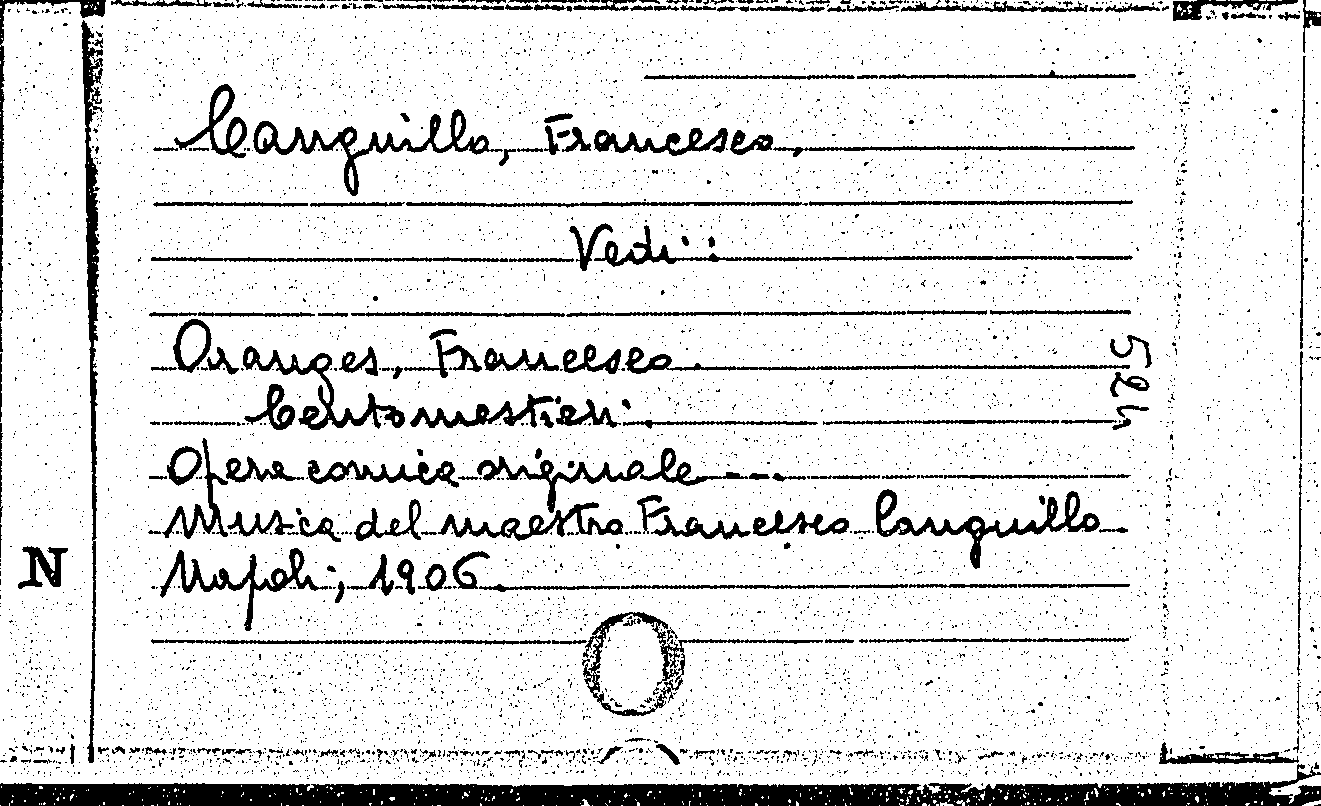 Canguillo, Francesco.
Vedi:
Oranges, Francesco.
Centomestieri.
Opera comica originale ---.
Musica del maestro Francesco Canguillo.
Napoli, 1906.
N
524